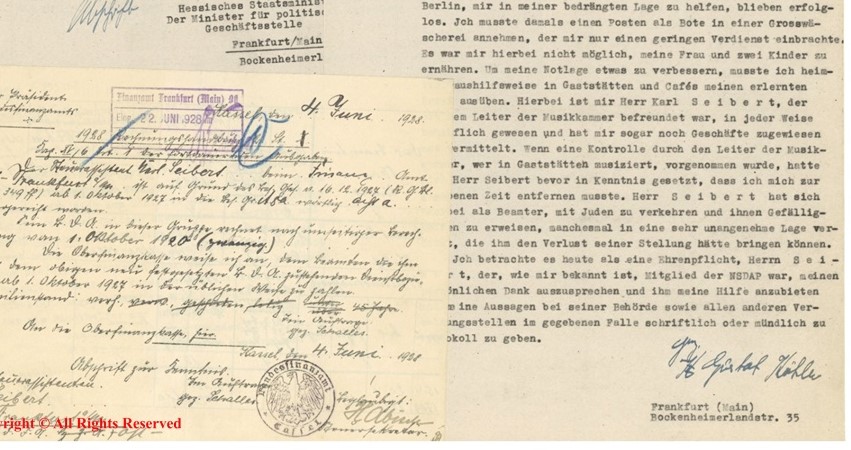 Abschrift
Hessisches Staatsminist
Der Minister für politisc
Geschäftsstelle
Frankfurt/Main
Bockenheimerl
Berlin, mir in meiner bedrängten Lage zu helfen, blieben erfolg-
los. Jch musste damals einen Posten als Bote in einer Grosswä-
scherei annehmen, der mir nur einen geringen Verdienst einbrachte.
Es war mir hierbei nicht möglich, meine Frau und zwei Kinder zu
ernähren. Um meine Notlage etwas zu verbessern, musste ich heim-
aushilfsweise in Gaststätten und Cafés meinen erlernten
ausüben. Hierbei ist mir Herr Karl S e i b e r t, der
em Leiter der Musikkammer befreundet war, in jeder Weise
flich gewesen und hat mir sogar noch Geschäfte zugewiesen
ermittelt. Wenn eine Kontrolle durch den Leiter der Musik-
r, wer in Gaststätten musiziert, vorgenommen wurde, hatte
Herr Seibert bevor in Kenntnis gesetzt, dass ich mich zur
benen Zeit entfernen musste. Herr S e i b e r t hat sich
bei als Beamter, mit Juden zu verkehren und ihnen Gefällig-
n zu erweisen, manchesmal in eine sehr unangenehme Lage ver-
t, die ihm den Verlust seiner Stellung hätte bringen können.
Jch betrachte es heute als eine Ehrenpflicht, Herrn S e i -
r t, der, wie mir bekannt ist, Mitglied der NSDAP war, meinen
önlichen Dank auszusprechen und ihm meine Hilfe anzubieten
meine Aussagen bei seiner Behörde sowie allen anderen Ver-
ungsstellen im gegebenen Falle schriftlich oder mündlich zu
okoll zu geben.
gez. Gustav Köhler
Frankfurt (Main)
Bockenheimerlandstr. 35
r Präsident
sfinanzamts
Finanzamt Frankfurt (Main)
Eing. 22. JUNI 1928
Cassel, den 4. Juni 1928.
1928 Rechnungs
Der Steuerassistent Karl Seibert beim Finanz-Amt
Frankfurt a. M. ist auf Grund des Bes. Ges. v. 16.12.1927 (R.G.Bl.
349 ff) ab 1. Oktober 1927 in die Bes. Gr.
gereiht worden.
Sein B.D.A. in dieser Gruppe rechnet nach umseitiger Berech-
ung vom 1. Oktober 1920 (zwanzig)
Die Oberfinanzkasse weise ich an, dem Beamten die ihm
dem obigen neu festgesetzten B.D.A. zustehenden Dienstbezüge
ab 1. Oktober 1927 in der üblichen Weise zu zahlen.
milienstand: verh.
Im Auftrage
gez. Schaller.
An die Oberfinanzkasse, hier.
Cassel, den 4. Juni 1928
Abschrift zur Kenntnis.
Im Auftrage
gez. Schaller
Landesfinanzamt
Cassel
Beglaubigt:
Steuersekretär.
euerassistenten
eibert
right © All Rights Reserved